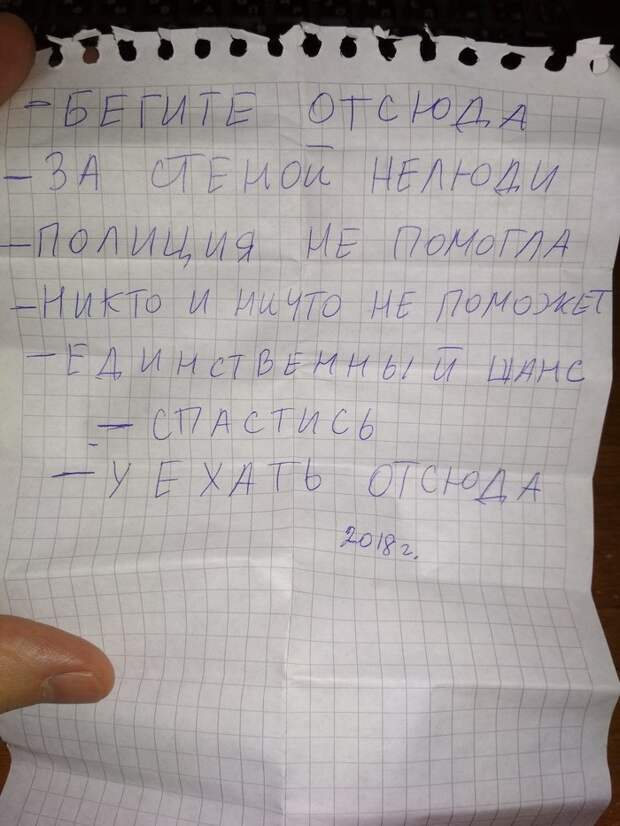 - БЕГИТЕ ОТСЮДА
- ЗА СТЕНОЙ НЕЛЮДИ
- ПОЛИЦИЯ НЕ ПОМОГЛА
- НИКТО И НИЧТО НЕ ПОМОЖЕТ
- ЕДИНСТВЕННЫЙ ШАНС
- СПАСТИСЬ
- УЕХАТЬ ОТСЮДА
2018 г.